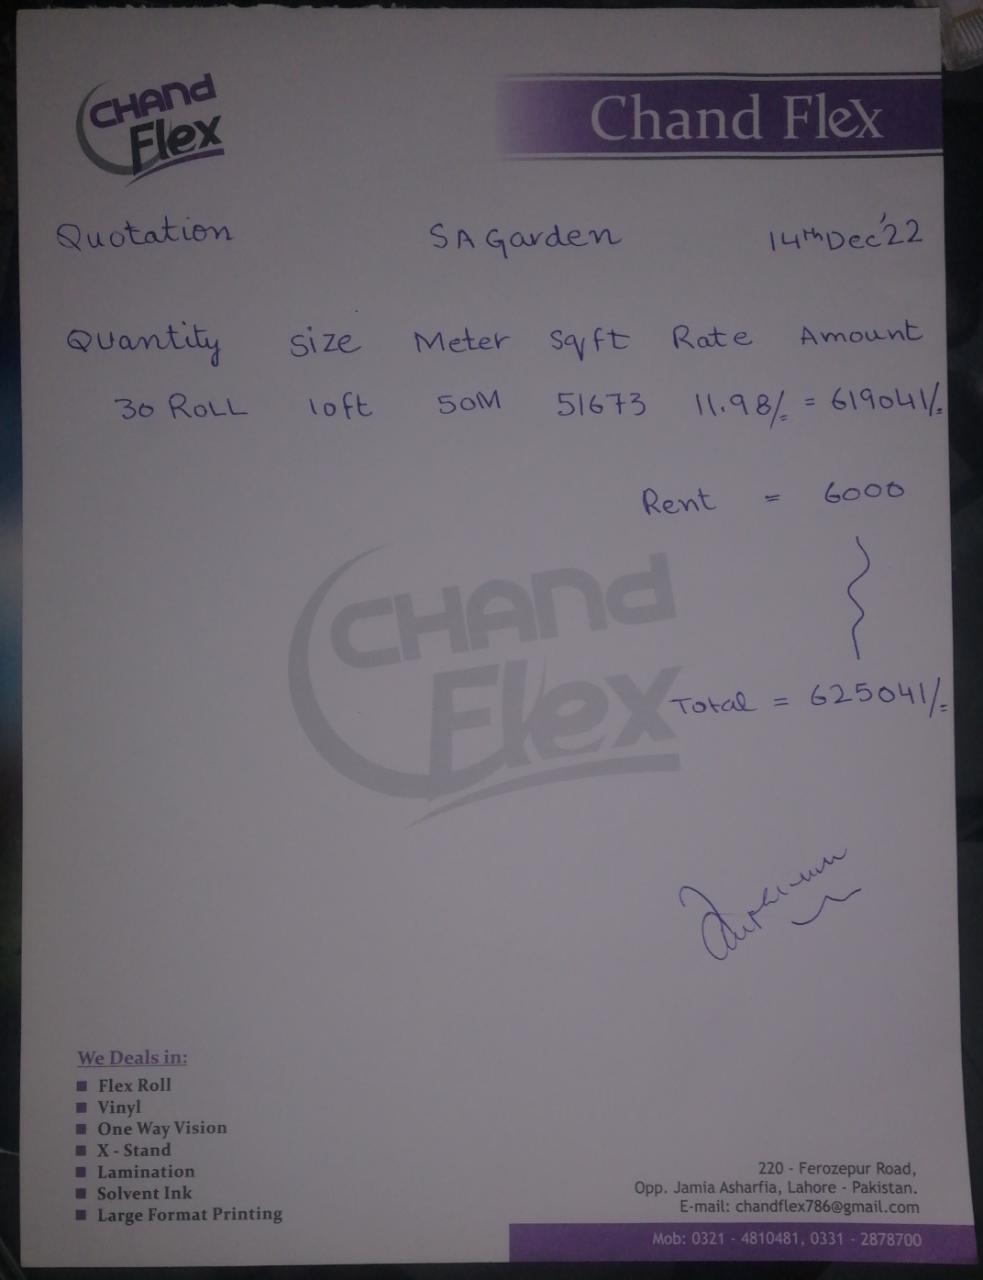 CHAND
Flex
Chand Flex
Quotation SA Garden 14th Dec'22
Quantity Size Meter Sqft Rate Amount
30 ROLL 10ft 50M 51673 11.98/= = 619041/=
Rent = 6000
CHAND
Flex
Total = 625041/=
We Deals in:
Flex Roll
Vinyl
One Way Vision
X - Stand
Lamination
Solvent Ink
Large Format Printing
220 - Ferozepur Road,
Opp. Jamia Asharfia, Lahore - Pakistan.
E-mail: chandflex786@gmail.com
Mob: 0321 - 4810481, 0331 - 2878700